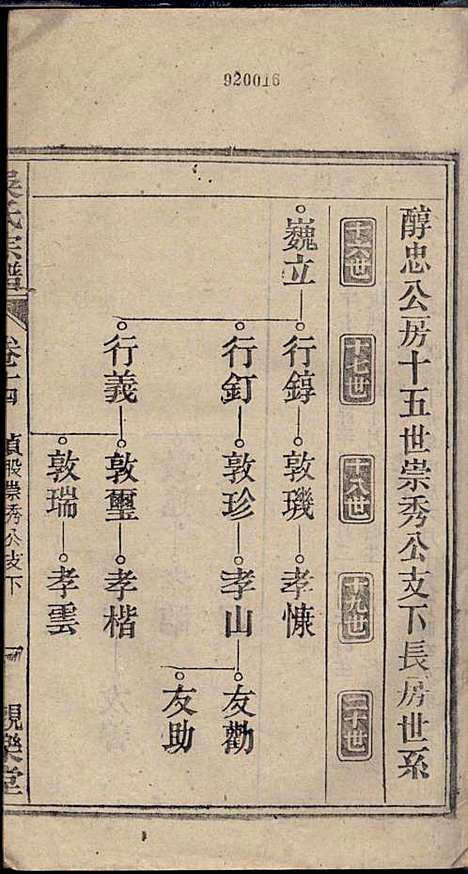 920016
醇忠公房十五世崇秀公支下長房世系
十六世
十七世
十八世
十九世
二十世
巍立
行錞
敦璣
孝慷
行釘
敦珍
孝山
友勸
友助
行義
敦璽
孝楷
敦瑞
孝雲
吳氏宗譜
卷十四
貞股崇秀公支下